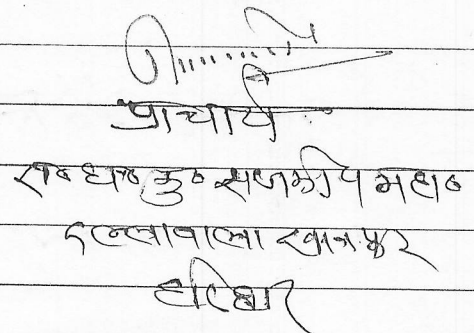 प्राचार्य
रा० ध० कु० राजकीय महा०
दल्लावाला खानपुर
हरिद्वार